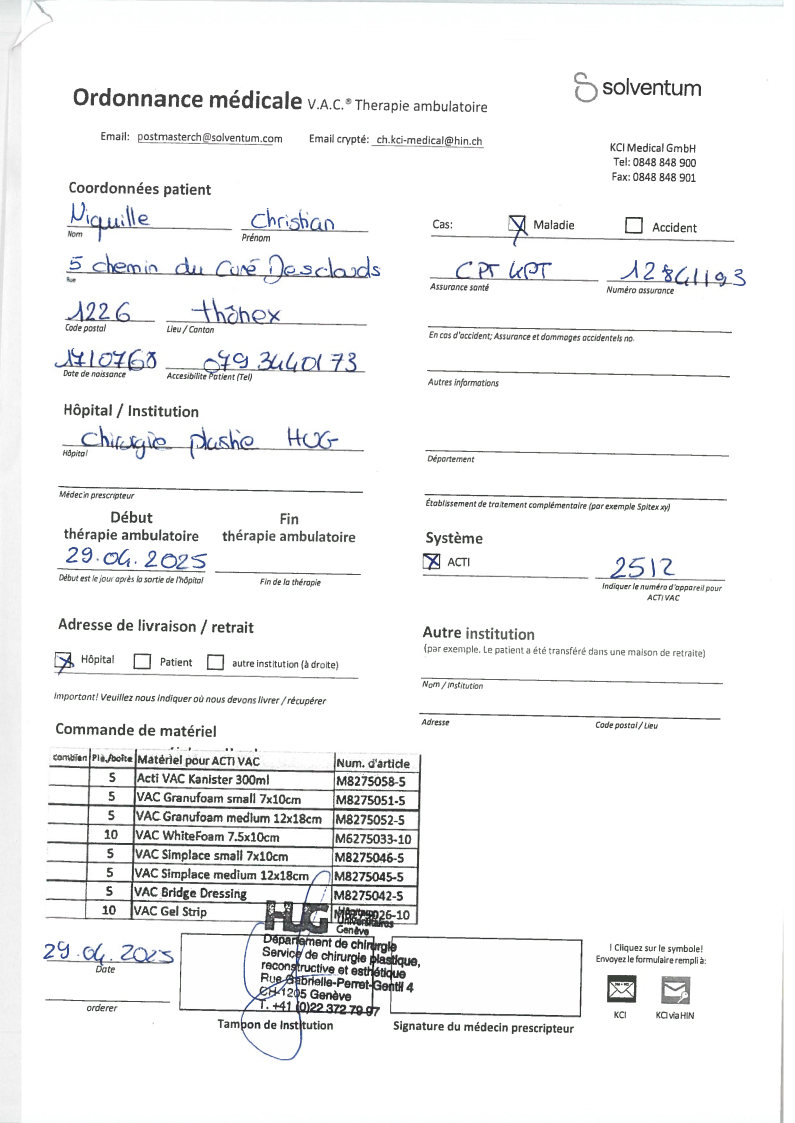 solventum
Ordonnance médicale V.A.C.® Therapie ambulatoire
Email: postmasterch@solventum.com Email crypté: ch.kci-medical@hin.ch
KCI Medical GmbH
Tel: 0848 848 900
Fax: 0848 848 901
Coordonnées patient
Niquille Christian
Nom Prénom
5 chemin du Curé Desclouds
Rue
1226 thônex
Code postal Lieu / Canton
17/07/68 079 3440173
Date de naissance Accesibilite Patient (Tel)
Cas: Maladie Accident
CPT KPT 12841193
Assurance santé Numéro assurance
En cas d'accident; Assurance et dommages accidentels no.
Autres informations
Hôpital / Institution
chirurgie plastie HUG
Hôpital
Département
Médecin prescripteur
Établissement de traitement complémentaire (par exemple Spitex xy)
Début Fin
thérapie ambulatoire thérapie ambulatoire
29.04.2025
Début est le jour après la sortie de l'hôpital Fin de la thérapie
Système
ACTI 2512
Indiquer le numéro d'appareil pour
ACTI VAC
Adresse de livraison / retrait
Hôpital Patient autre institution (à droite)
Important! Veuillez nous indiquer où nous devons livrer / récupérer
Autre institution
(par exemple. Le patient a été transféré dans une maison de retraite)
Nom / Institution
Adresse Code postal / Lieu
Commande de matériel
combien Piè./boîte Matériel pour ACTI VAC Num. d'article
5 Acti VAC Kanister 300ml M8275058-5
5 VAC Granufoam small 7x10cm M8275051-5
5 VAC Granufoam medium 12x18cm M8275052-5
10 VAC WhiteFoam 7.5x10cm M6275033-10
5 VAC Simplace small 7x10cm M8275046-5
5 VAC Simplace medium 12x18cm M8275045-5
5 VAC Bridge Dressing M8275042-5
10 VAC Gel Strip 26-10
HUG Hôpitaux
Universitaires
Genève
Département de chirurgie
Service de chirurgie plastique,
reconstructive et esthétique
Rue Gabrielle-Perret-Gentil 4
CH-1205 Genève
T. +41 (0)22 372 79 97
29.04.2025
Date
orderer
Tampon de Institution Signature du médecin prescripteur
! Cliquez sur le symbole!
Envoyez le formulaire rempli à:
KCI KCI via HIN